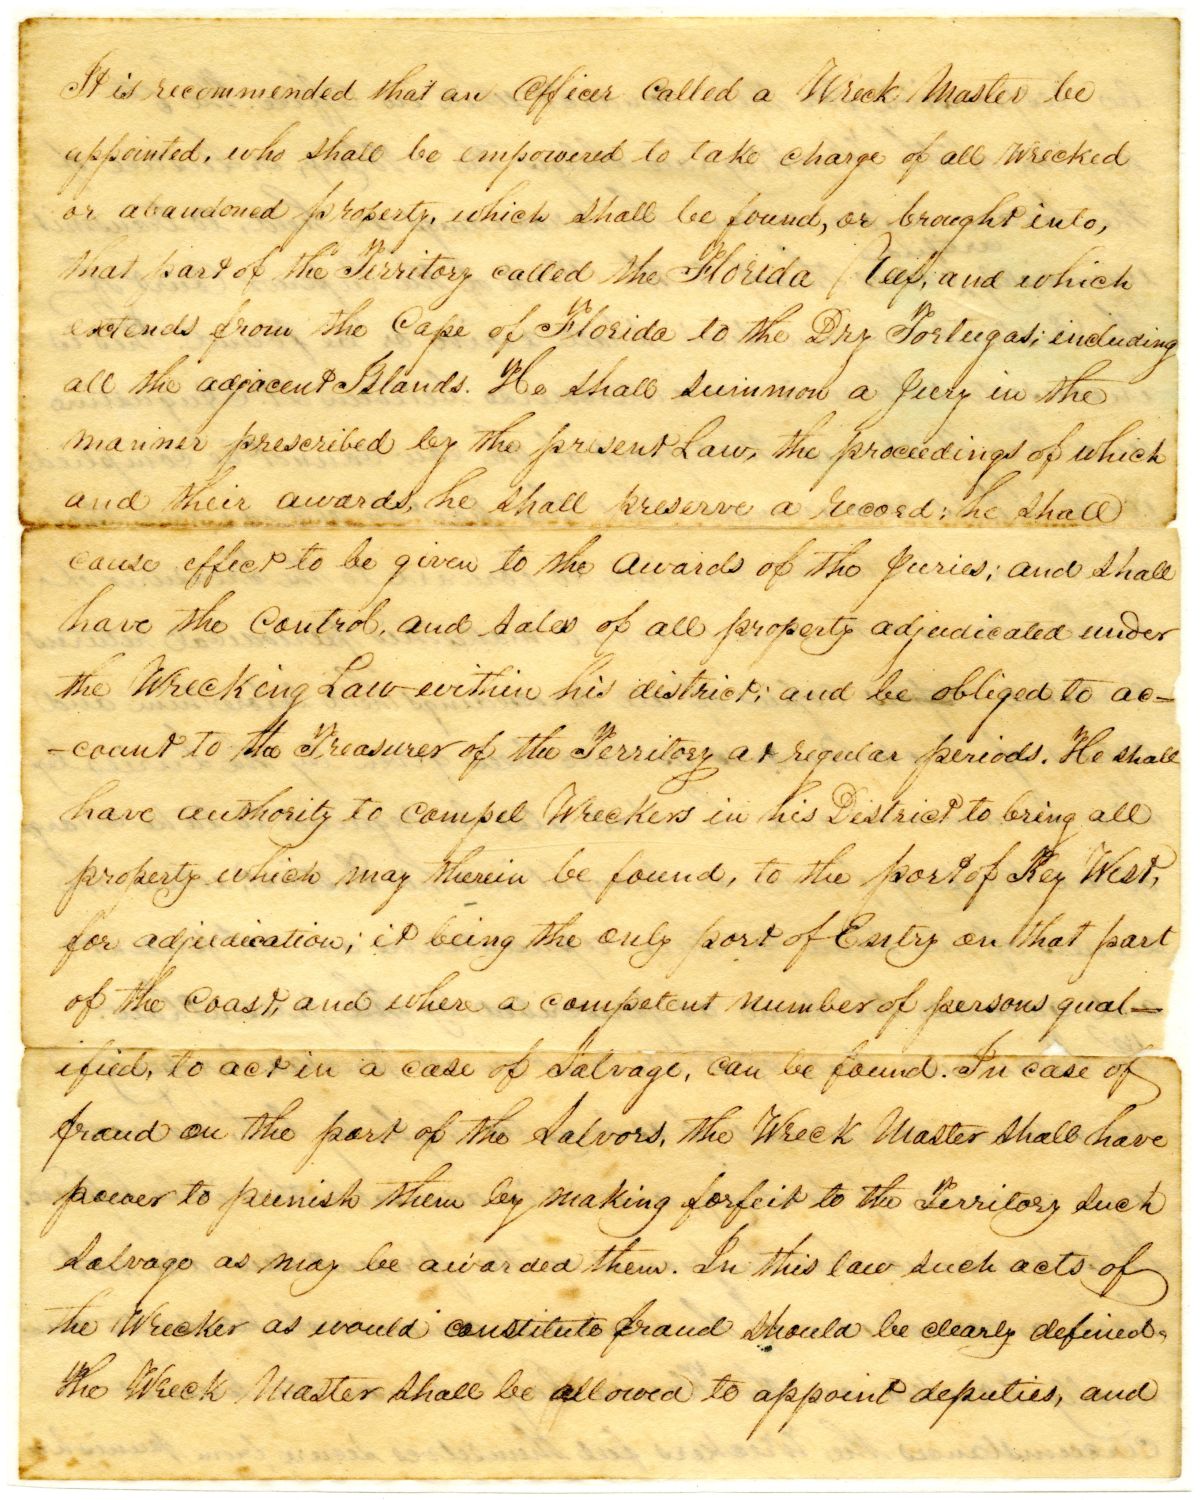 It is recommended that an Officer called a Wreck Master be
appointed, who shall be empowered to take charge of all wrecked
or abandoned property, which shall be found, or brought into,
that part of the Territory called the Florida Reef, and which
extends from the Cape of Florida to the Dry Tortugas; including
all the adjacent Islands. He shall summon a Jury in the
manner prescribed by the present Law, the proceedings of which
and their awards, he shall preserve a record; he shall
cause effect to be given to the awards of the Juries; and shall
have the Control, and sales of all property adjudicated under
the Wrecking Law within his district; and be obliged to ac-
-count to the Treasurer of the Territory at regular periods. He shall
have authority to compel Wreckers in his District to bring all
property which may therein be found, to the port of Key West,
for adjudication; it being the only port of Entry on that part
of the Coast, and where a competent number of persons qual-
ified, to act in a case of Salvage, can be found. In case of
fraud on the part of the Salvors, the Wreck Master shall have
power to punish them by making forfeit to the Territory such
Salvage as may be awarded them. In this law such acts of
the Wrecker as would constitute fraud should be clearly defined.
The Wreck Master shall be allowed to appoint deputies, and